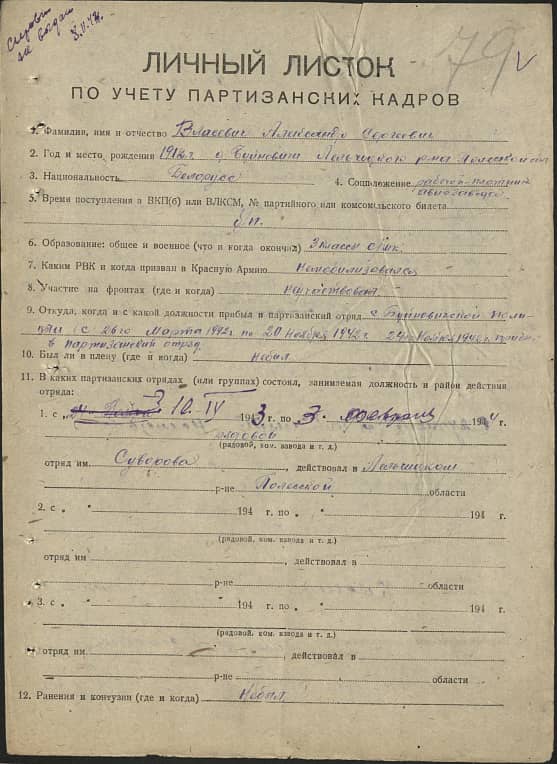 Справки
не выдан
79 v
ЛИЧНЫЙ ЛИСТОК
ПО УЧЕТУ ПАРТИЗАНСКИХ КАДРОВ
1. Фамилия, имя и отчество Власевич Александр Сергеевич
2. Год и место рождения 1912 г. д. Буйновичи Лельчицкого р-на Полесской обл
3. Национальность Белорусс
4. Соцположение рабочий-плотник
авиазавода
5. Время поступления в ВКП(б) или ВЛКСМ, № партийного или комсомольского билета
б/п.
6. Образование: общее и военное (что и когда окончил) 3 класса
7. Каким РВК и когда призван в Красную Армию Немобилизовался
8. Участие на фронтах (где и когда) неучаствовал
9. Откуда, когда и с какой должности прибыл в партизанский отряд с Буйновичской поли-
ции (с 28го марта 1942 г по 20 Ноября 1942 г. 24 Ноября 1942 г. прибыл
в партизанский отряд
10. Был ли в плену (где и когда) Небыл
11. В каких партизанских отрядах (или группах) состоял, занимаемая должность и район действия
отряда:
1. с „ 10. IV 1943 г. по 3. февраля 1944 г.
рядовой
(рядовой, ком. взвода и т. д.)
отряд им. Суворова, действовал в Лельчицком
р-не Полесской области
2. с „ 194 г. по „ 194 г.
(рядовой, ком. взвода и т. д.)
отряд им, действовал в
р-не области
3. с „ 194 г. по „ 194 г.
(рядовой, ком. взвода и т. д.)
отряд им., действовал в
р-не области
12. Ранения и контузии (где и когда) Небыл